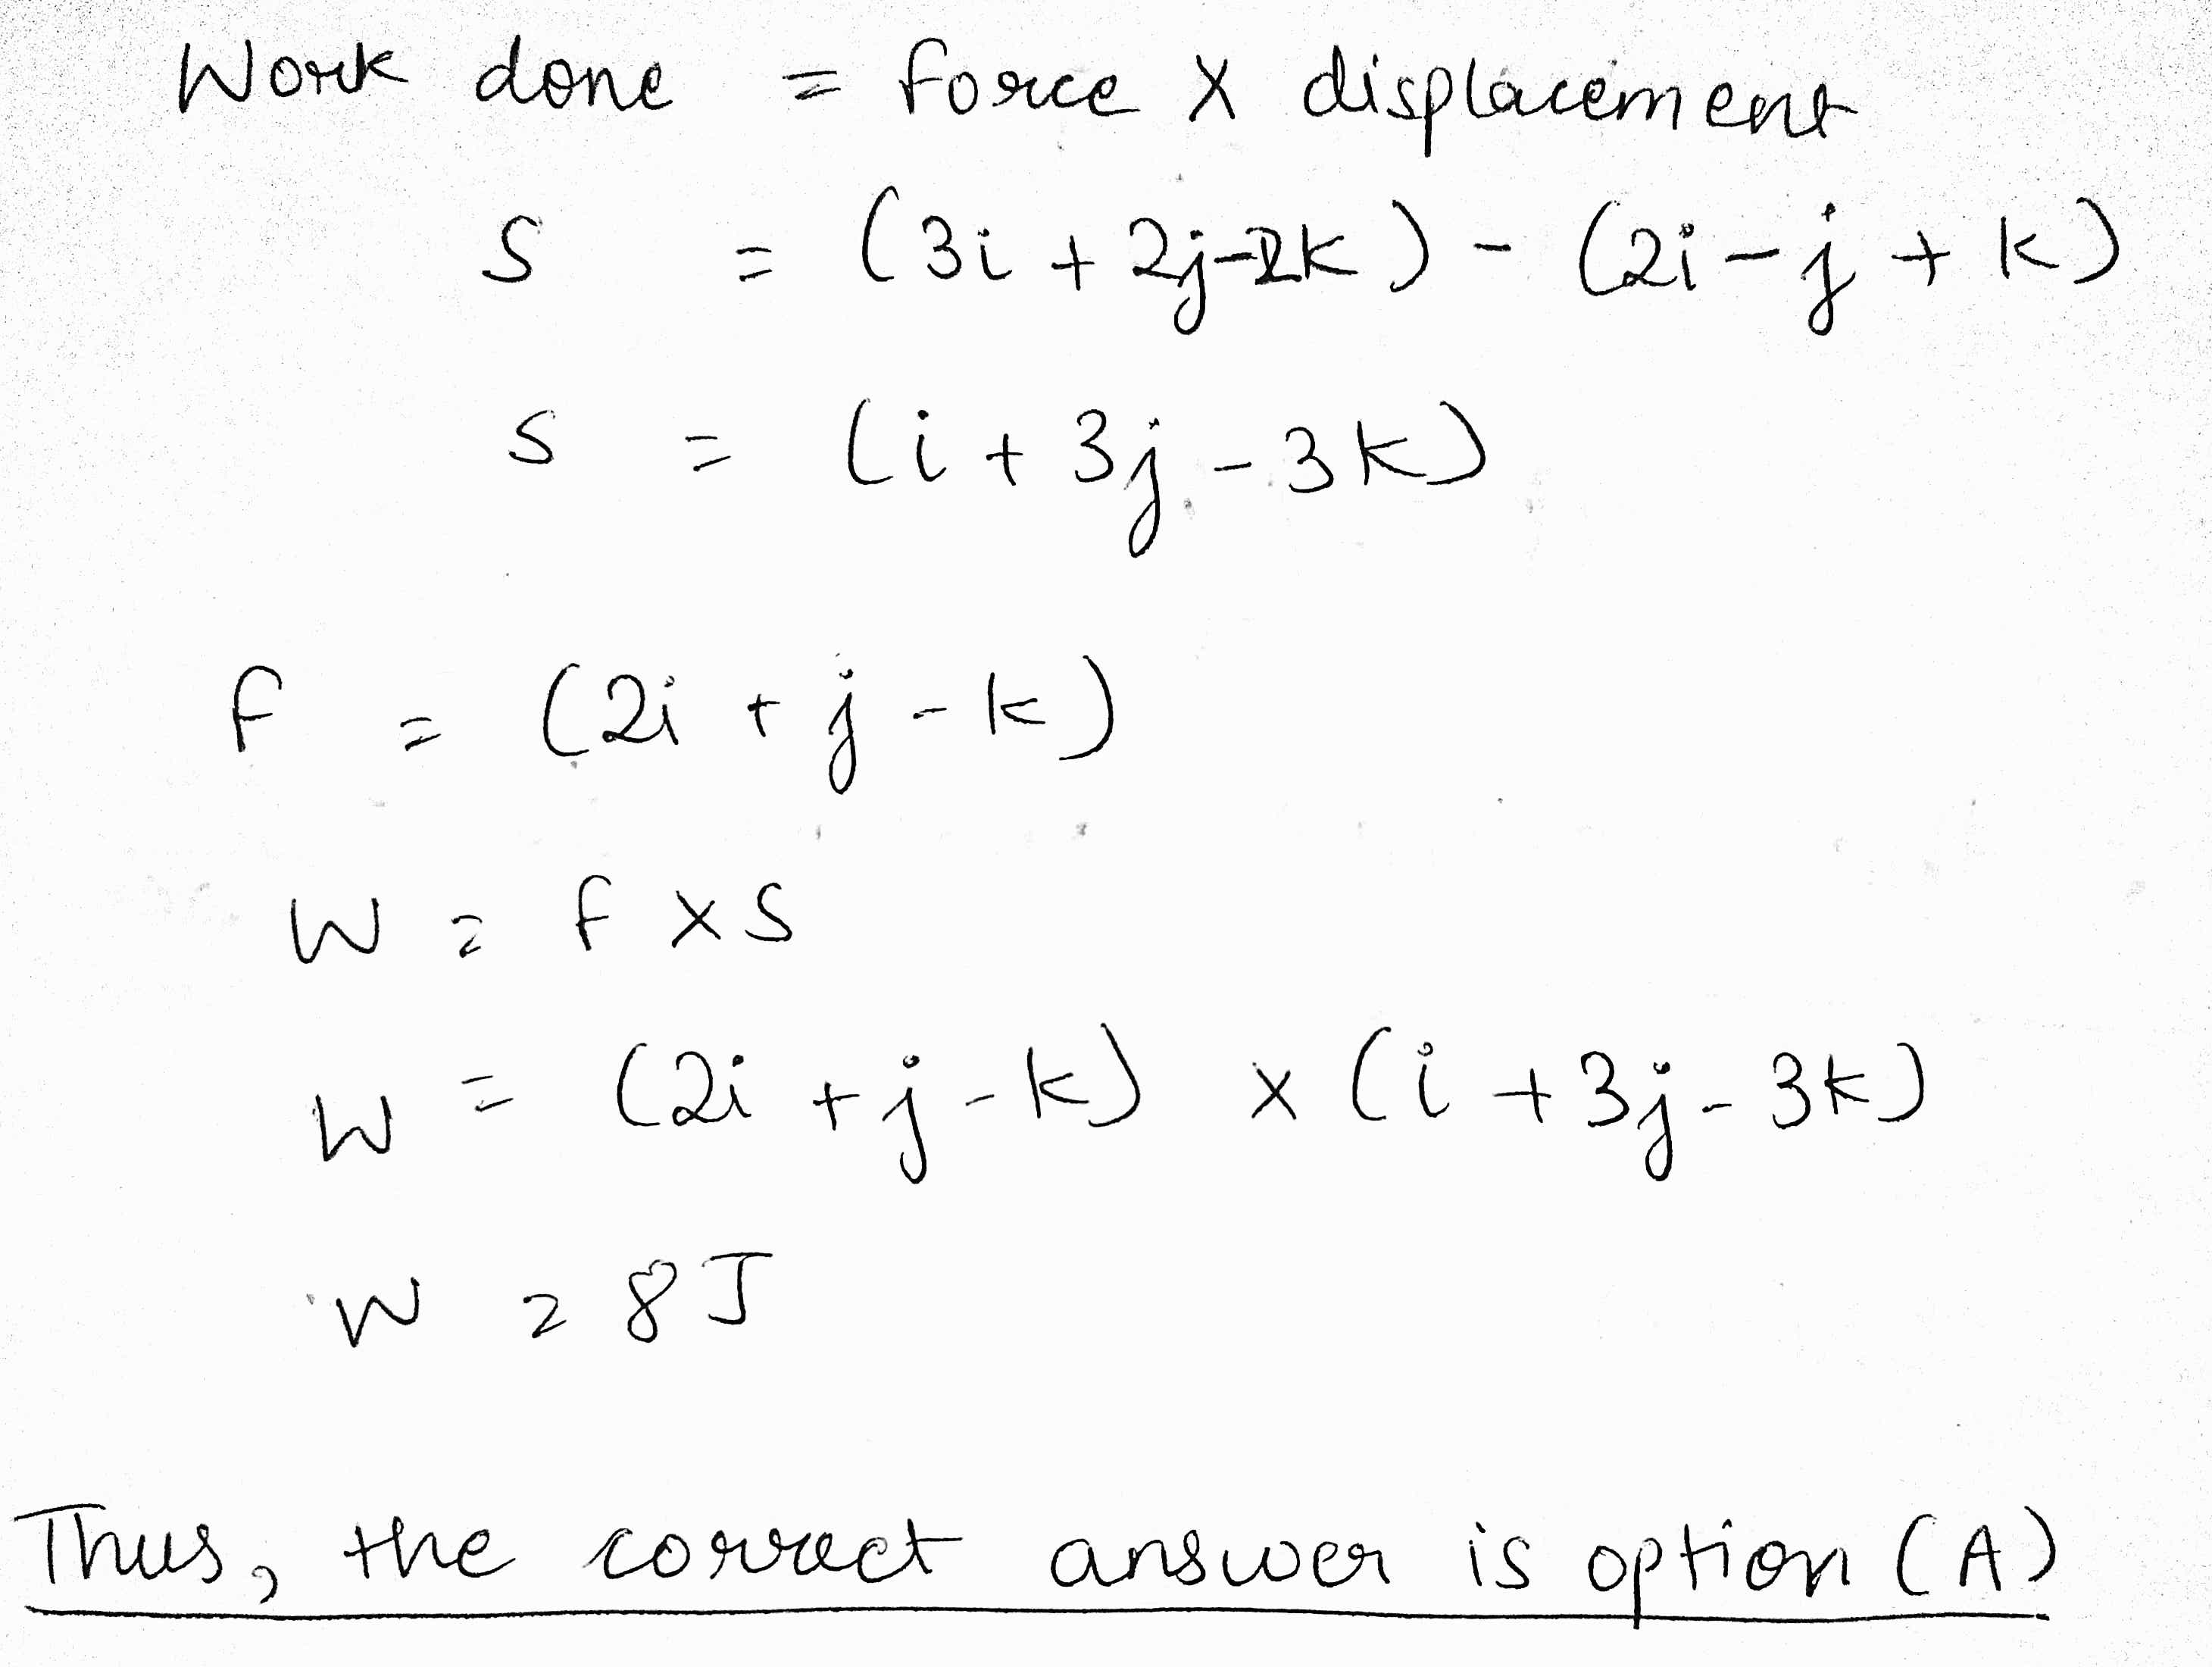 Work done = force X displacement
S = (3i + 2j-2k) - (2i - j + k)
S = (i + 3j - 3k)
f = (2i + j - k)
W = f x S
W = (2i + j - k) x (i + 3j - 3k)
W = 8J
Thus, the correct answer is option (A)